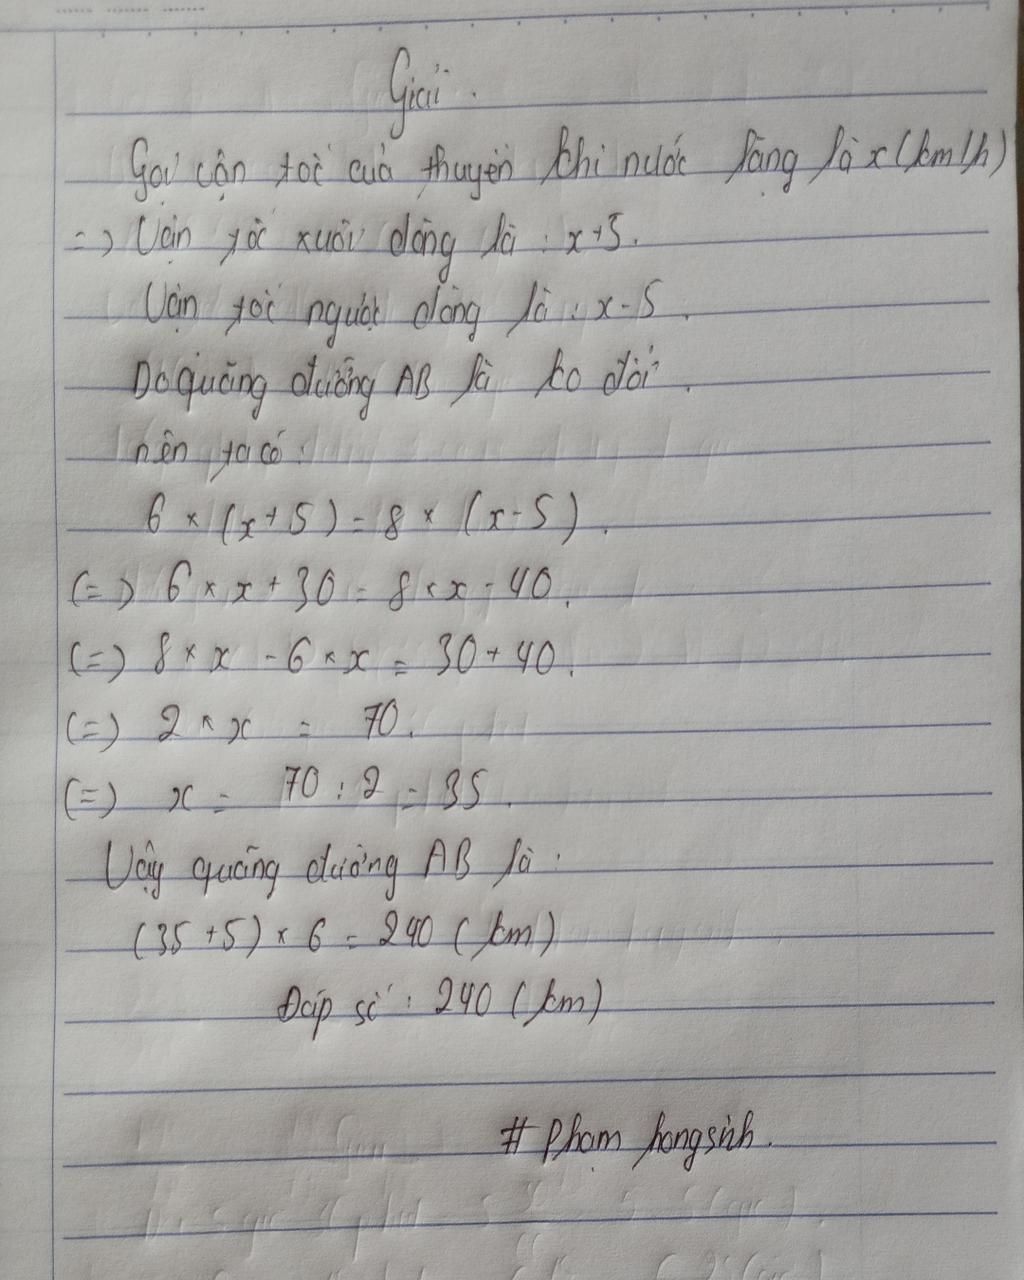 Giải.
Gọi vận tốc của thuyền khi nước lặng là x (km/h)
=> Vận tốc xuôi dòng là : x+5.
Vận tốc ngược dòng là : x-5.
Do quãng đường AB là ko đổi.
nên ta có :
6 × (x+5) = 8 × (x-5).
(=) 6 × x + 30 = 8 × x - 40.
(=) 8 × x - 6 × x = 30 + 40.
(=) 2 × x = 70.
(=) x = 70 : 2 = 35.
Vậy quãng đường AB là :
(35 +5) × 6 = 240 (km)
Đáp số : 240 (km)
# Phạm hongsinh.